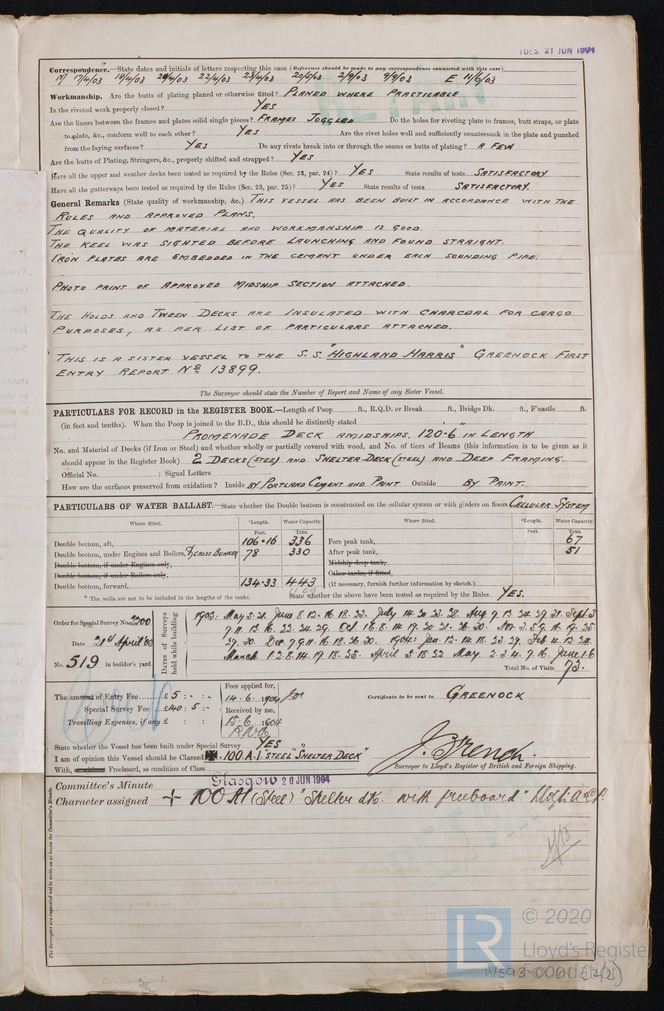 TUES. 21 JUN 1904
Correspondence.—State dates and initials of letters respecting this case (Reference should be made to any correspondence connected with this case)
M 7/4/03 19/4/03 22/4/03 23/4/03 20/5/03 2/9/03 9/9/03 E 11/6/03
Workmanship. Are the butts of plating planed or otherwise fitted? PLANED WHERE PRACTICABLE
Is the riveted work properly closed? YES
Are the liners between the frames and plates solid single pieces? FRAMES JOGGLED Do the holes for riveting plate to frames, butt straps, or plate
to plate, &c., conform well to each other? YES Are the rivet holes well and sufficiently countersunk in the plate and punched
from the faying surfaces? YES Do any rivets break into or through the seams or butts of plating? A FEW
Are the butts of Plating, Stringers, &c., properly shifted and strapped? YES
Have all the upper and weather decks been tested as required by the Rules (Sec. 23, par. 24)? YES State results of tests SATISFACTORY
Have all the gutterways been tested as required by the Rules (Sec. 23, par. 25)? YES State results of tests SATISFACTORY.
General Remarks (State quality of workmanship, &c.) THIS VESSEL HAS BEEN BUILT IN ACCORDANCE WITH THE
RULES AND APPROVED PLANS.
THE QUALITY OF MATERIAL AND WORKMANSHIP IS GOOD.
THE KEEL WAS SIGHTED BEFORE LAUNCHING AND FOUND STRAIGHT.
IRON PLATES ARE EMBEDDED IN THE CEMENT UNDER EACH SOUNDING PIPE.
PHOTO PRINT OF APPROVED MIDSHIP SECTION ATTACHED.
THE HOLDS AND TWEEN DECKS ARE INSULATED WITH CHARCOAL FOR CARGO
PURPOSES, AS PER LIST OF PARTICULARS ATTACHED.
THIS IS A SISTER VESSEL TO THE S.S. "HIGHLAND HARRIS" GREENOCK FIRST
ENTRY REPORT No. 13899.
The Surveyor should state the Number of Report and Name of any Sister Vessel.
PARTICULARS FOR RECORD in the REGISTER BOOK.—Length of Poop ft., R.Q.D. or Break ft., Bridge Dk. ft., F'castle ft.
(in feet and tenths). When the Poop is joined to the B.D., this should be distinctly stated
PROMENADE DECK AMIDSHIPS, 120-6 IN LENGTH
No. and Material of Decks (if Iron or Steel) and whether wholly or partially covered with wood, and No. of tiers of Beams (this information is to be given as it
should appear in the Register Book) 2 DECKS (STEEL) AND SHELTER DECK (STEEL) AND DEEP FRAMING.
Official No. ; Signal Letters
How are the surfaces preserved from oxidation? Inside BY PORTLAND CEMENT AND PAINT Outside BY PAINT.
PARTICULARS OF WATER BALLAST.—State whether the Double bottom is constructed on the cellular system or with girders on floors CELLULAR SYSTEM
Where fitted. *Length. Water Capacity. Where fitted. *Length. Water Capacity.
Feet. Tons. Feet. Tons.
Double bottom, aft, 106·16 336 Fore peak tank, 67
Double bottom, under Engines and Boilers, & CROSS BUNKER 78 330 After peak tank, 51
Double bottom, if under Engines only, Midship deep tank,
Double bottom, if under Boilers only, Other tanks, if fitted,
Double bottom, forward, 134·33 443 (If necessary, furnish further information by sketch)
1109
* The wells are not to be included in the lengths of the tanks. State whether the above have been tested as required by the Rules YES.
Order for Special Survey No. 2200
Date 21st April 03
No. 519 in builder's yard.
DATES of Surveys held while building
1903: May 5. 21. June 8. 12. 16. 18. 23. July 14. 20. 23. 28. Aug 7. 13. 24. 27. 31. Sept 3
7. 11. 13. 16. 22. 24. 29. Oct 1. 6. 8. 14. 17. 20. 21. 26. 30. Nov 3. 5. 9. 16. 19. 25
27. 30. Dec 7. 9. 11. 16. 18. 26. 30. 1904: Jan. 12. 14. 18. 23. 29. Feb 4. 12. 24.
March 1. 2. 8. 14. 17. 18. 25. April 5. 18. 22 May 2. 3. 4. 7. 16. June 1. 6
Total No. of Visits 73.
The amount of Entry Fee £ 5 : - : - Fees applied for, 14. 6. 1904
Special Survey Fee £40 : 5 : - Received by me, 15. 6. 1904
Travelling Expenses, if any £ : :
Certificate to be sent to GREENOCK
State whether the Vessel has been built under Special Survey YES
I am of opinion this Vessel should be Classed ✠ 100.A.1 "STEEL" "SHELTER DECK"
With, Freeboard, as condition of Class
J. French.
Surveyor to Lloyd's Register of British and Foreign Shipping.
Committee's Minute Glasgow 20 JUN 1904
Character assigned + 100 A1 (Steel) "Shelter dk. with freeboard"
The Surveyors are requested not to write on or below the Committee's Minute.
© 2020
LR
Lloyd's Register
Foundation
WS93-0061 (2/2)